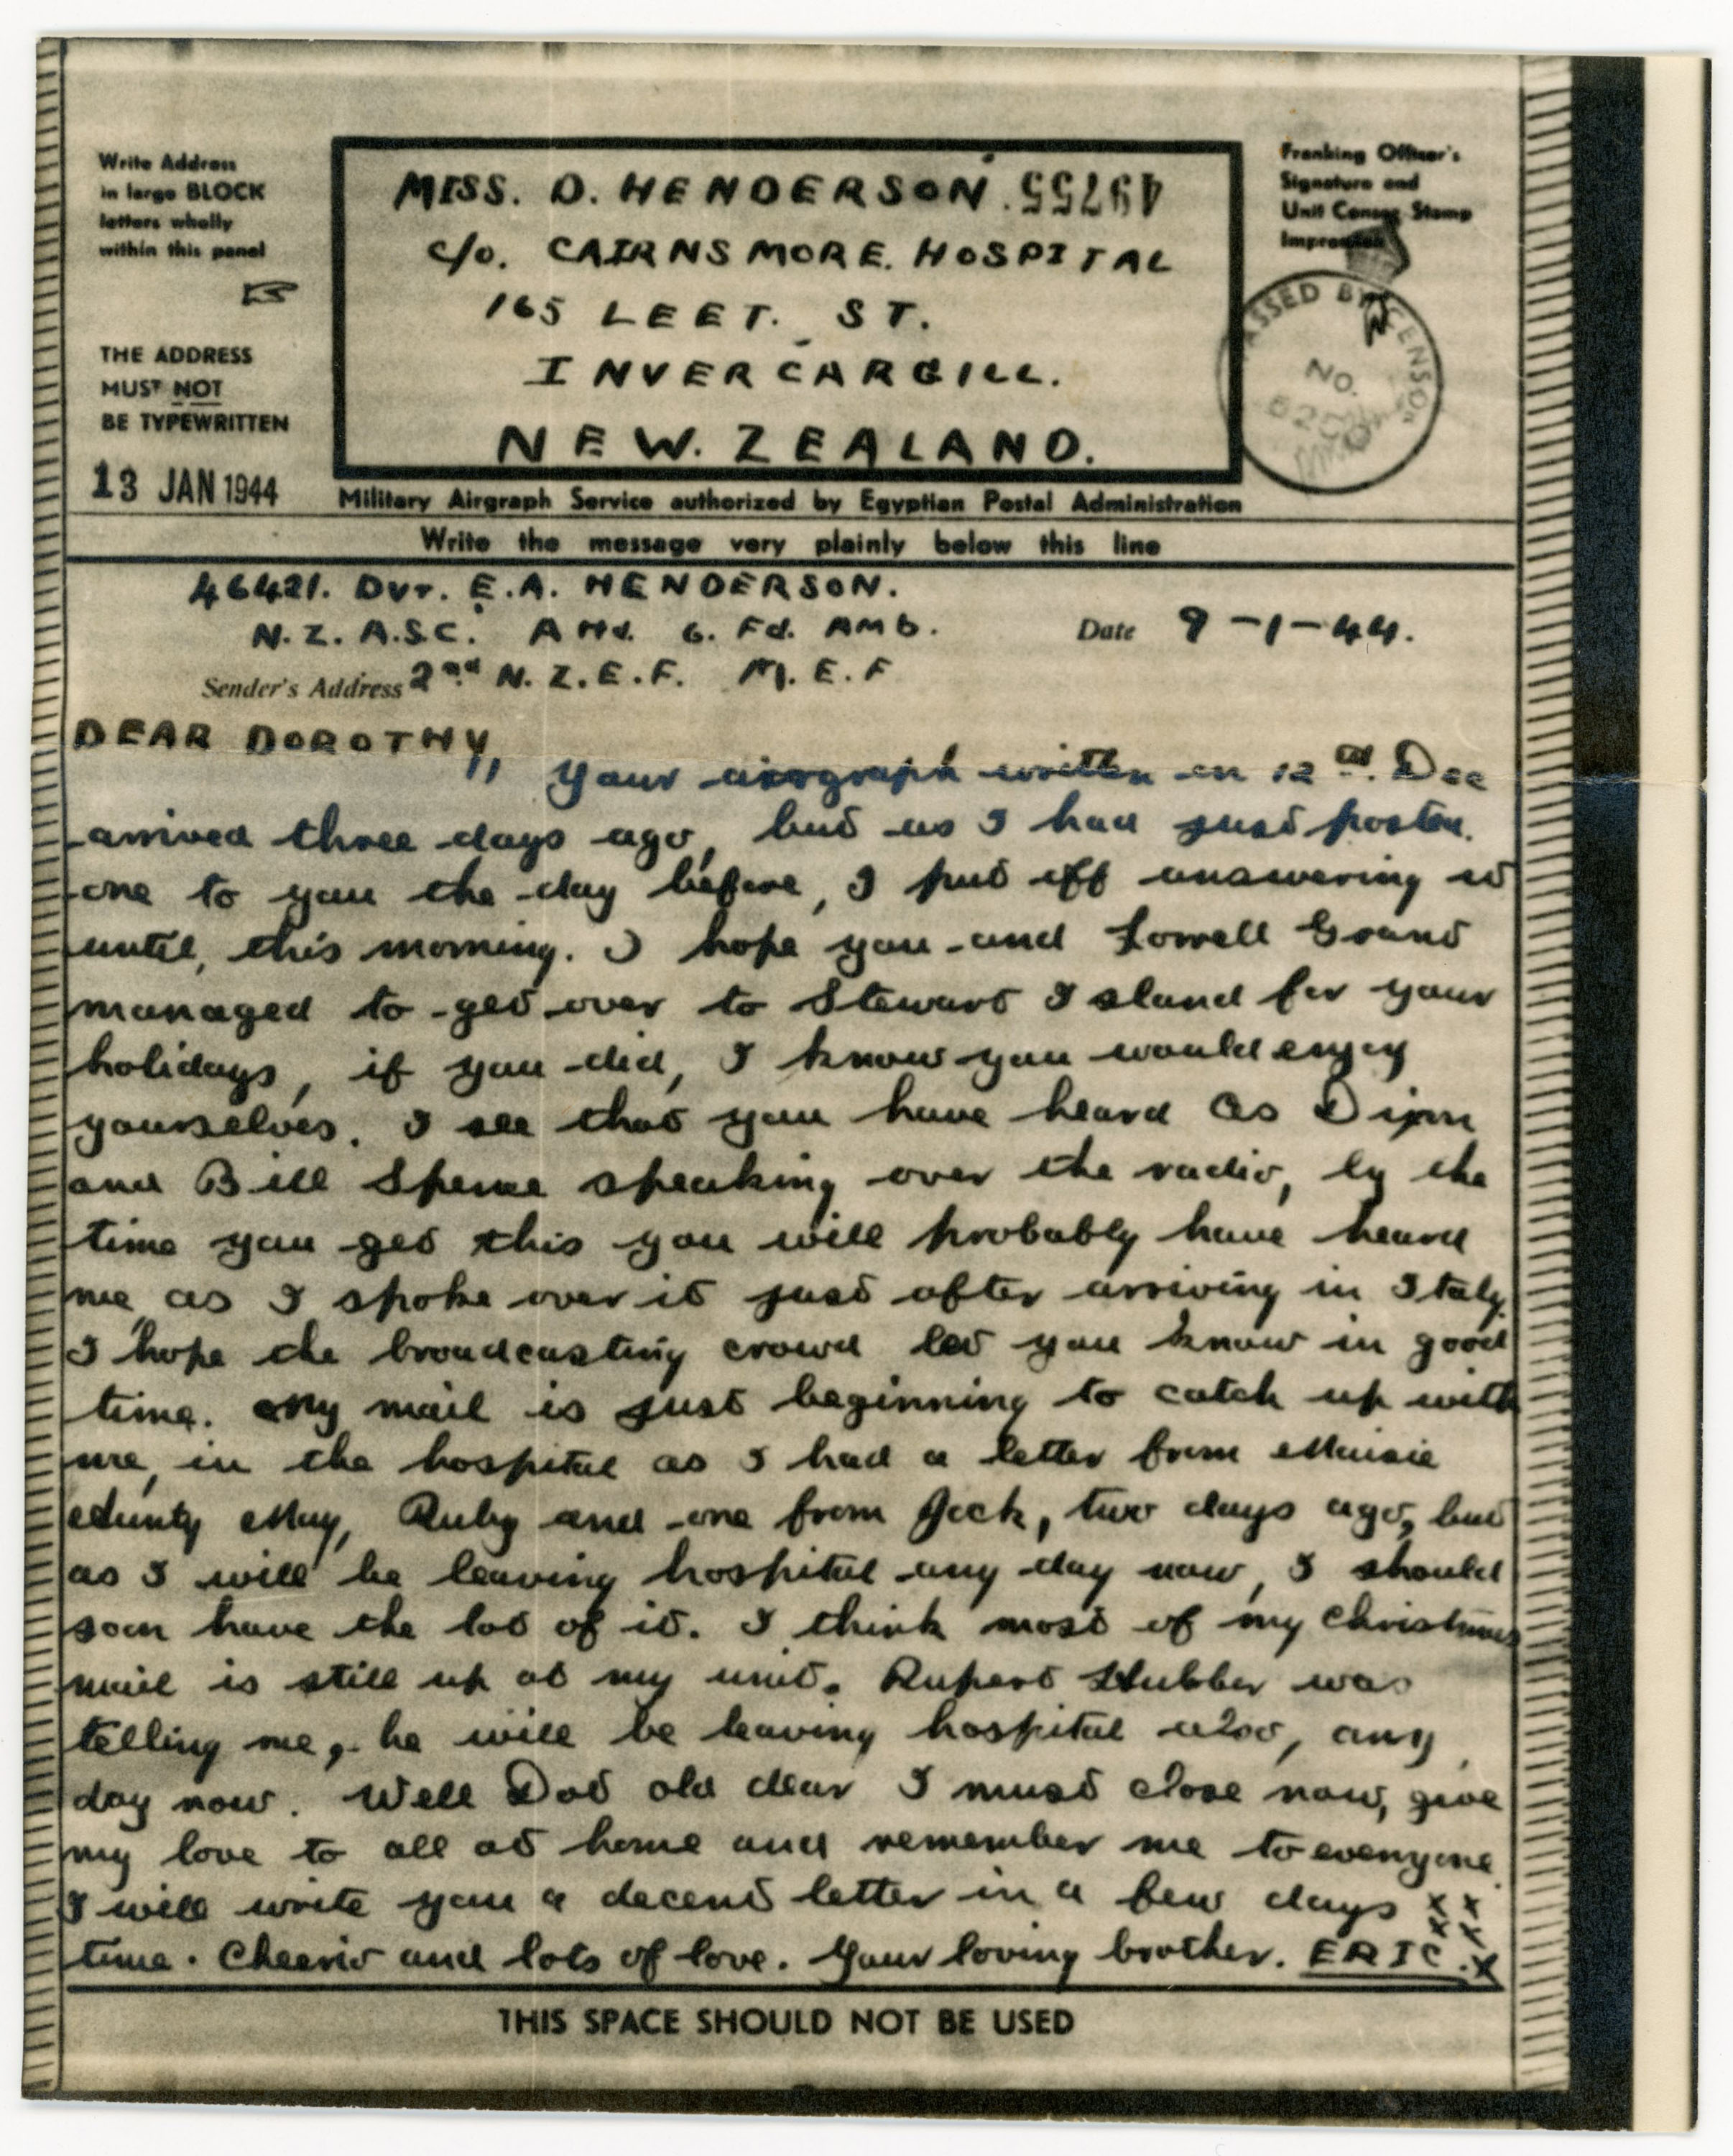 Write Address
in large BLOCK
letters wholly
within this panel
THE ADDRESS
MUST NOT
BE TYPEWRITTEN
13 JAN 1944
MISS. D. HENDERSON. 49755
c/o. CAIRNSMORE. HOSPITAL
165 LEET. ST.
INVERCARGILL.
NEW. ZEALAND.
Franking Officer's
Signature and
Unit Censor Stamp
Impression
PASSED BY CENSOR
No.
Military Airgraph Service authorized by Egyptian Postal Administration
Write the message very plainly below this line
46421. Dvr. E.A. HENDERSON.
N.Z.A.S.C. Attd. 6. Fd. AMB.
Date 9-1-44.
Sender's Address 2nd N.Z.E.F. M.E.F
DEAR DOROTHY,,
Your airgraph written on 12nd. Dec
arrived three days ago, but as I had just posted
one to you the day before, I put off answering it
until, this morning. I hope you and Lowell Grant
managed to get over to Stewart Island for your
holidays, if you did, I know you would enjoy
yourselves. I see that you have heard Os Dixon
and Bill Spence speaking over the radio, by the
time you get this you will probably have heard
me, as I spoke over it just after arriving in Italy.
I hope the broadcasting crowd let you know in good
time. My mail is just beginning to catch up with
me, in the hospital as I had a letter from Maisie
Aunty May, Ruby and one from Jock, two days ago, but
as I will be leaving hospital any day now, I should
soon have the lot of it. I think most of my Christmas
mail is still up at my unit. Rupert Hubber was
telling me, he will be leaving hospital also, any
day now. Well Dot old dear I must close now, give
my love to all at home and remember me to everyone.
I will write you a decent letter in a few days x x
time. Cheerio and lots of love. Your loving brother. ERIC. x x x
THIS SPACE SHOULD NOT BE USED